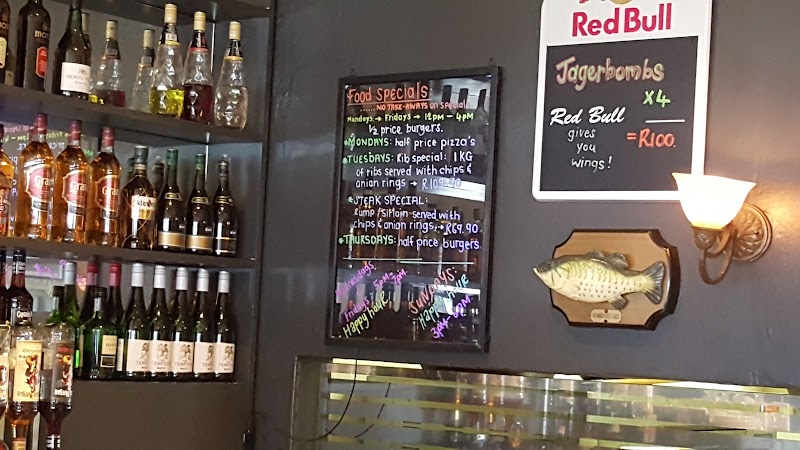 Red Bull
Jagerbombs
X4
Red Bull
gives
you
wings!
=R100.
Food Specials:
......NO TAKE-AWAYS on specials
Mondays → Fridays → 12pm - 4pm
1/2 price burgers.
MONDAYS: half price pizza's
TUESDAYS: Rib special: 1KG
of ribs served with chips &
onion rings → R109.90
STEAK SPECIAL:
Rump/Sirloin served with
chips & onion rings, → R69.90
THURSDAYS: half price burgers
Wednesdays
Fridays 5pm-
7pm.
Happy hour
SUNDAYS:
Happy hour
Grant's